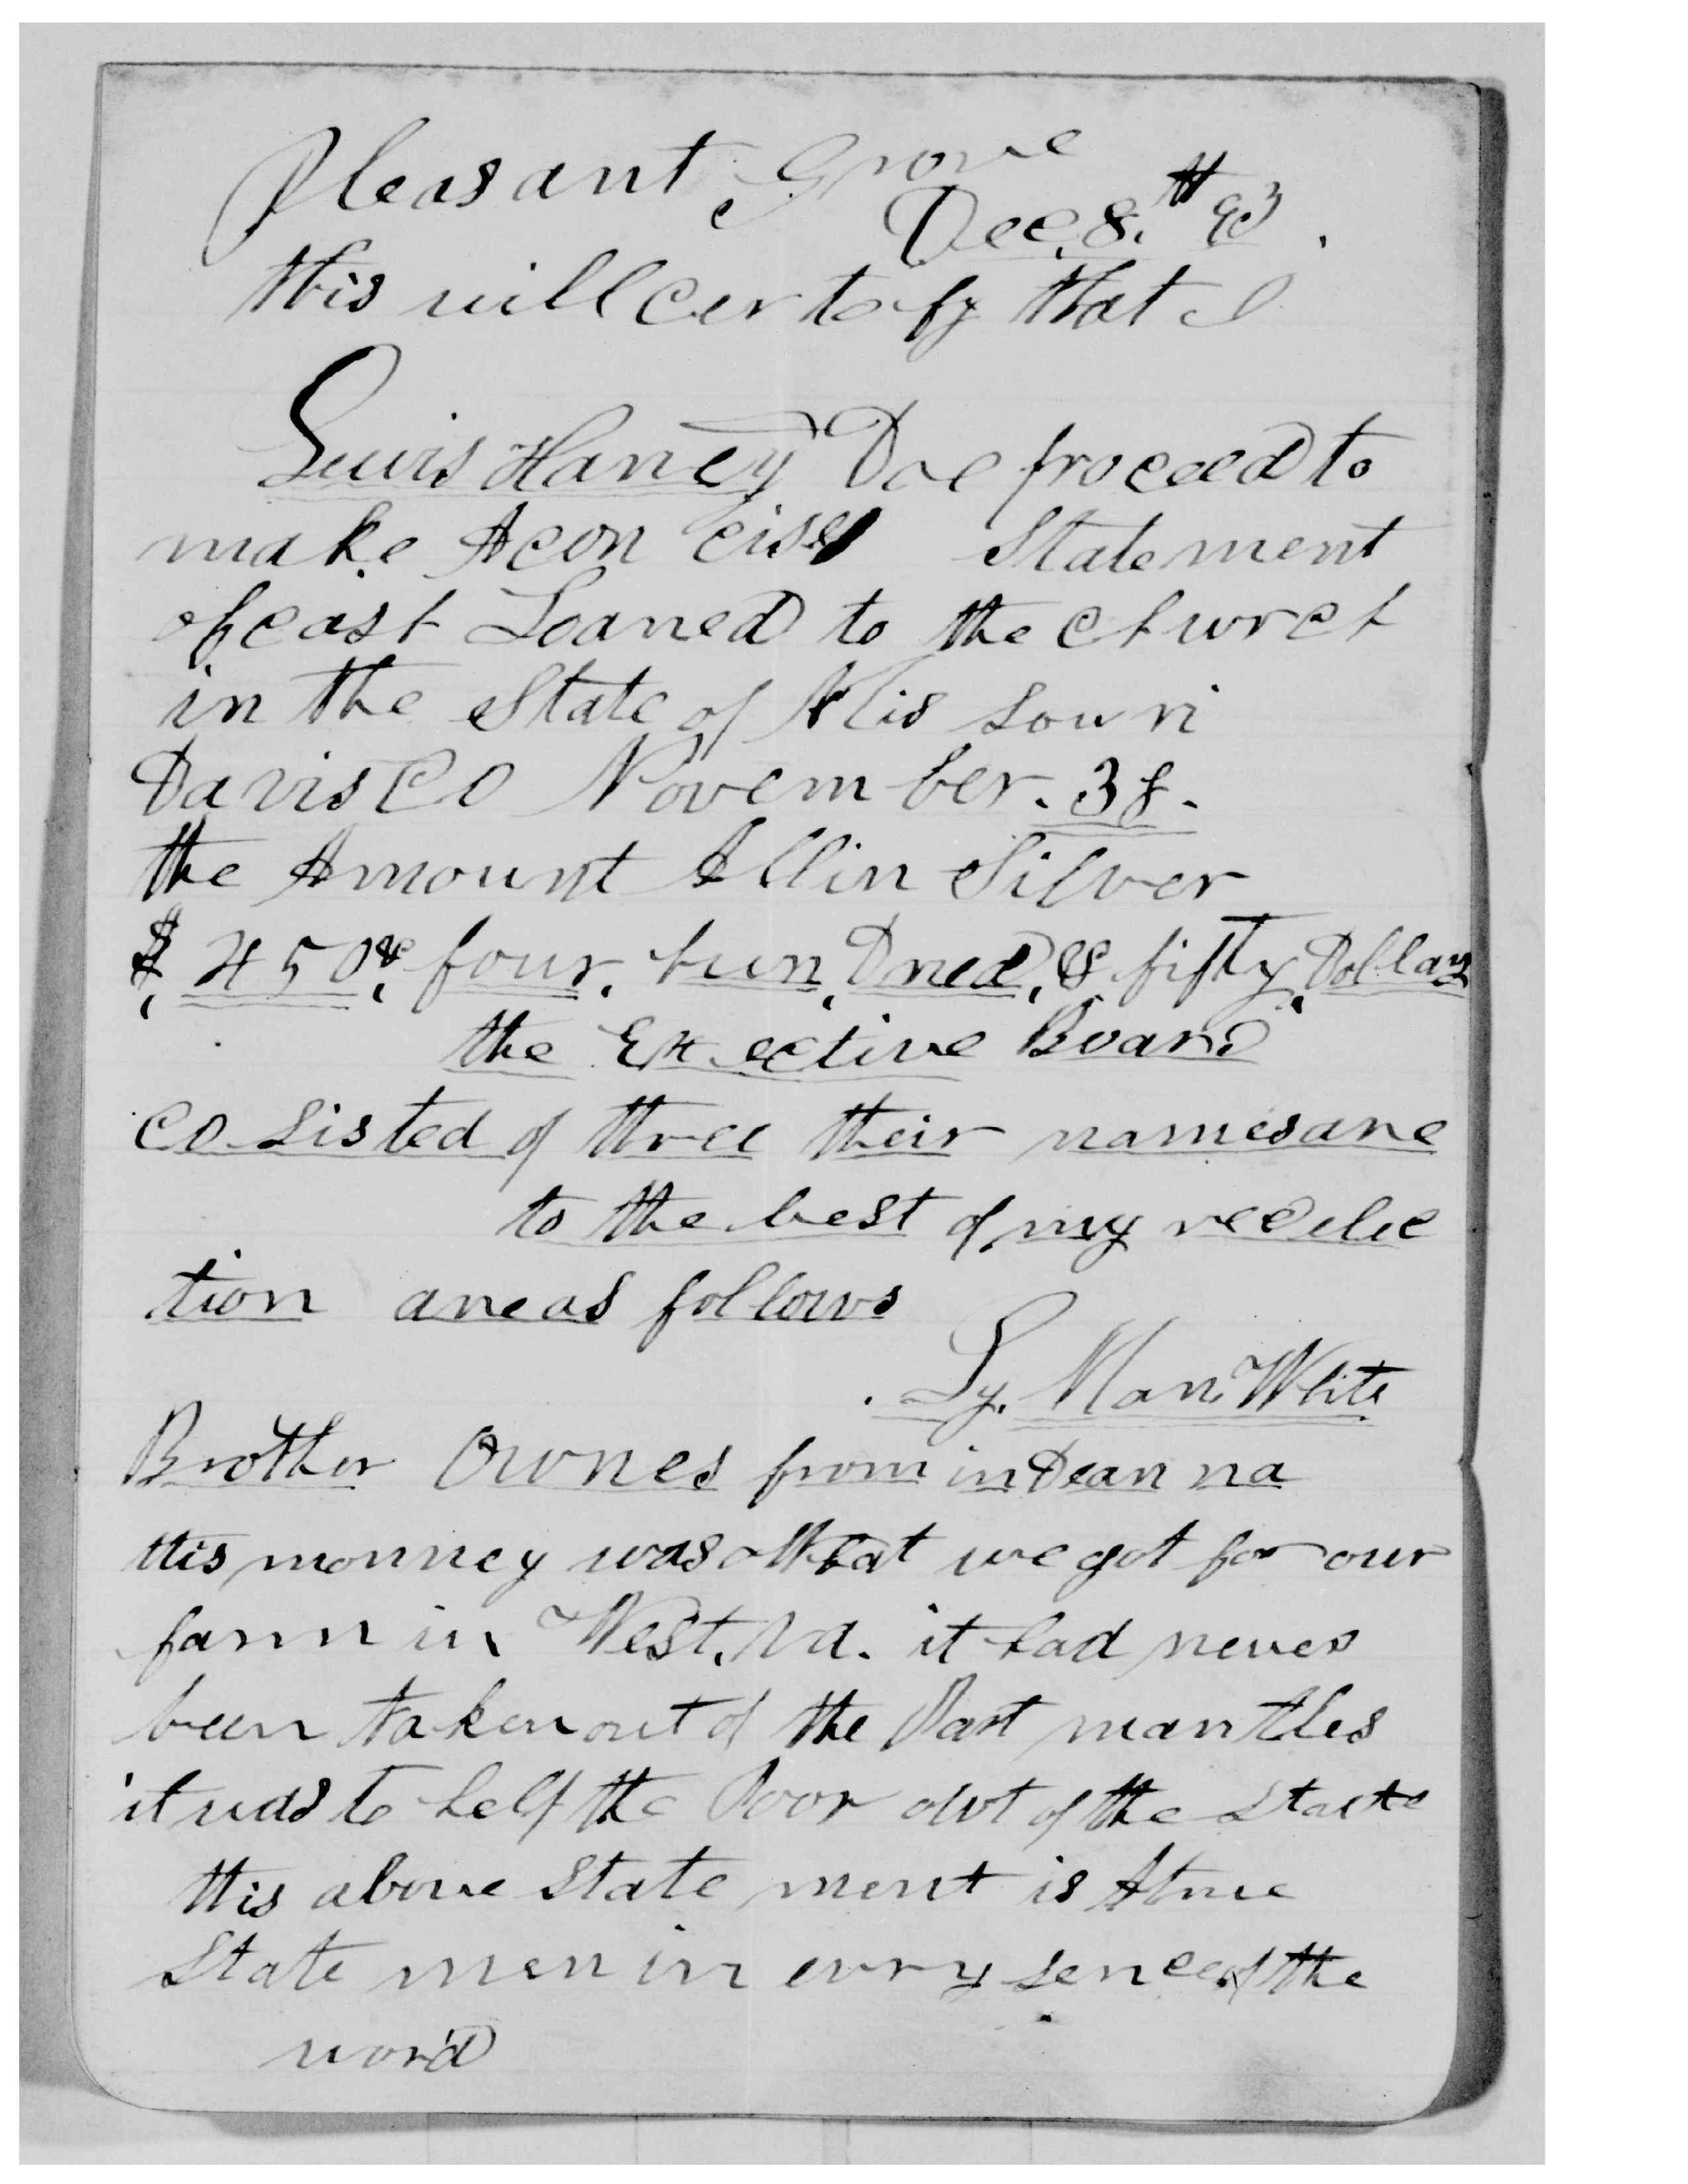 Pleasant, Grove
Dec. 8.th 93.
this will certefy that I
Lewis Haney Doe proceed to
make A con cise Statement
of cash Loaned to the church
in the State of Mis souri
Davis CO November. 38.
the Amount All in Silver
$, 450, four, hun, Dred, & fifty, Dollars
the Ex ective Board
co sisted of three their names are
to the best of my recelec
tion are as follows
. Ly. Man. White
Brother Ownes from in Dean na
this monney was What we got for our
farm in West. Va. it had never
been taken out of the Part mantles
it was to help the Poor out of the State
this above State ment is A true
State men in evry sence of the
word